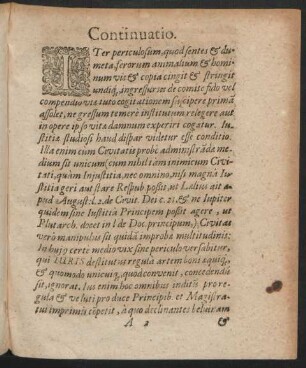 Continuatio.
ITer periculosum, quod sentes & du-
meta, ferorum animalium & homi-
num vis & copia cingit & stringit
undiq;, ingressurus de comite fido vel
compendio via tuto cogitationem suscipere primâ
assolet, ne gressum temerè institutum relegere aut
in opere ipso vita damnum experiri cogatur. Iu-
stitiæ studiosi haud dispar videtur esse conditio.
Illa enim cum Civitatis probè administrãda me-
dium sit unicum; cum nihil tàm inimicum Civi-
tati, quàm Injustitia, nec omnino, nisi magnâ Iu-
stitiâ geri aut stare Respub. possit, ut Lælius ait a-
pud August: l. 2. de Civit. Dei c. 21, & ne Iupiter
quidem sine Iustitiâ Principem possit agere, ut
Plutarch. docet in l. de Doc. principum,) Civitas
verò manipulus sit quidã improba multitudinis;
In hujus certè medio vix sine periculo versabitur,
qui IURIS destitutus regula artem boni æquiq;,
& quomodo unicuiq, quod convenit, concedendũ
sit, ignorat. Ius enim hoc omnibus inditũ pro re-
gula & veluti pro duce Principib. et Magistra-
tus imprimis cõpetit, à quo declinantes labi tam
A 2 &